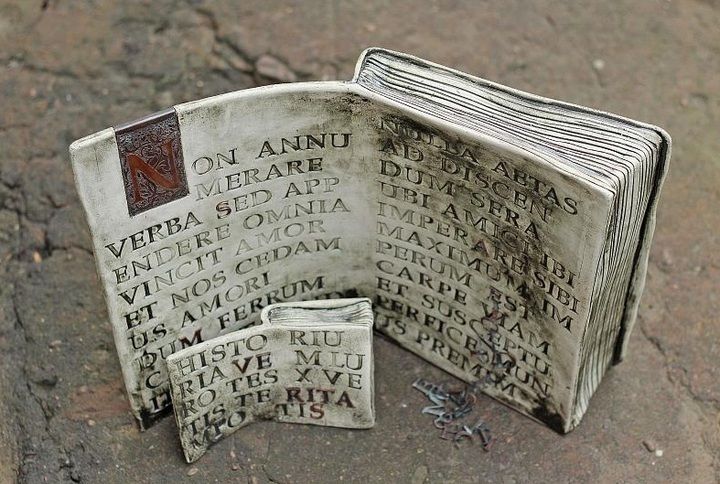 NON ANNU
MERARE
VERBA SED APP
ENDERE OMNIA
VINCIT AMOR
ET NOS CEDAM
US AMORI
DUM FERRUM
NULLA AETAS
AD DISCEN
DUM SERA
UBI AMICI IBI
IMPERARE SIBI
MAXIMUM IM
PERUM EST
CARPE VIAM
ET SUSCEPTU
PERFICE MUN
US PREMUM
HISTO
RIA VE
RO TES
TIS TE
MPO
RIU
M LU
X VE
RITA
TIS